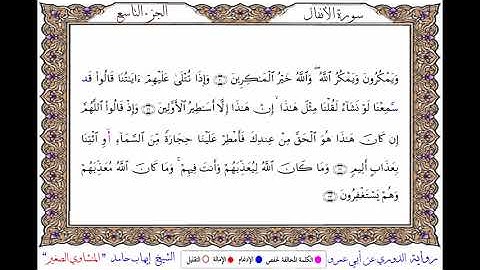 سورة الأنفال
الجزء التاسع
وَيَمْكُرُونَ وَيَمْكُرُ ٱللَّهُ ۖ وَٱللَّهُ خَيْرُ ٱلْمَٰكِرِينَ وَإِذَا تُتْلَىٰ عَلَيْهِمْ ءَايَٰتُنَا قَالُوا۟ قَد
سَّمِعْنَا لَوْ نَشَآءُ لَقُلْنَا مِثْلَ هَٰذَا ۙ إِنْ هَٰذَا إِلَّا أَسَٰطِيرُ ٱلْأَوَّلِينَ وَإِذْ قَالُوا۟ ٱللَّهُمَّ
إِن كَانَ هَٰذَا هُوَ ٱلْحَقَّ مِنْ عِندِكَ فَأَمْطِرْ عَلَيْنَا حِجَارَةً مِّنَ ٱلسَّمَآءِ أَوِ ٱئْتِنَا
بِعَذَابٍ أَلِيمٍ وَمَا كَانَ ٱللَّهُ لِيُعَذِّبَهُمْ وَأَنتَ فِيهِمْ ۚ وَمَا كَانَ ٱللَّهُ مُعَذِّبَهُمْ
وَهُمْ يَسْتَغْفِرُونَ
رواية الدوري عن أبي عمرو
الكلمة المخالفة لحفص
الإدغام
الإمالة
التقليل
الشيخ إيهاب حامد "المنشاوي الصغير"